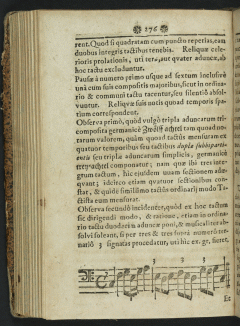 176
rent. Quod si quadratam cum puncto reperias, eam
duobus integris tactibus tenebis. Reliquæ cele-
rioris prolationis, uti teræ, aut quater aduncæ, ab
hoc tactu excluduntur.
Pausæ à numero primo usque ad sextum inclusivè
unà cum suis compositis majoribus, sicut in ordina-
rio & communi tactu tacentur, seu silentiô absol-
vuntur. Reliquæ suis notis quoad temporis spa-
tium correspondent.
Observa primò, quòd vulgò tripla aduncarum tri-
composita germanicè achtel tam quoad no-
tarum valorem, quàm quoad tactûs mensuram ex
quatuor temporibus seu tactibus dupla subbiparti-
entis seu tripla aduncarum simplicis, germanicè
trey-achtel componatur; nam quæ ibi tres inte-
grum tactum, hic ejusdem unam sectionem adim-
plent; idcirco etiam quatuor sectionibus con-
stat, & quidem simillimò tactûs ordinarij modo Ta-
ctista eum mensurat.
Observa secundò incidenter, quòd ex hoc tactum
sic dirigendi modo, & ratione, etiam in ordina-
rio tactu duodecim aduncæ poni, & musicaliter ab-
solvi soleant, si per tres & tres suprà numerô ter-
nariô 3 signatas procedatur, uti hìc ex. gr. fieret.
3 3 3
Et